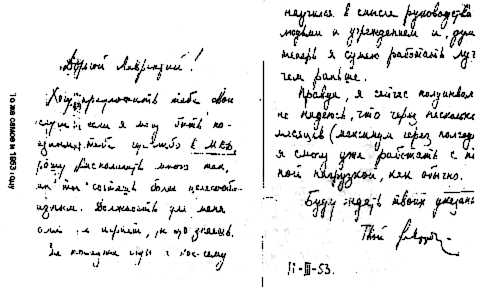 Дорогой Лаврентий!
Хочу предложить тебе свои
услуги: если я могу быть по-
в МВД,
прошу располагать мною так,
как ты сочтешь более целесооб-
разным. Должность для меня
роли не играет, ты это знаешь.
За последнее
научился в смысле руководства
людьми и учреждением и, дум
теперь я сумею работать луч
чем раньше.
Правда, я сейчас полуинвал
но надеюсь, что через несколько
месяцев (максимум через полгода
я смогу уже работать с по
ной нагрузкой, как обычно.
Буду ждать твоих указани
Твой
11-III-53.